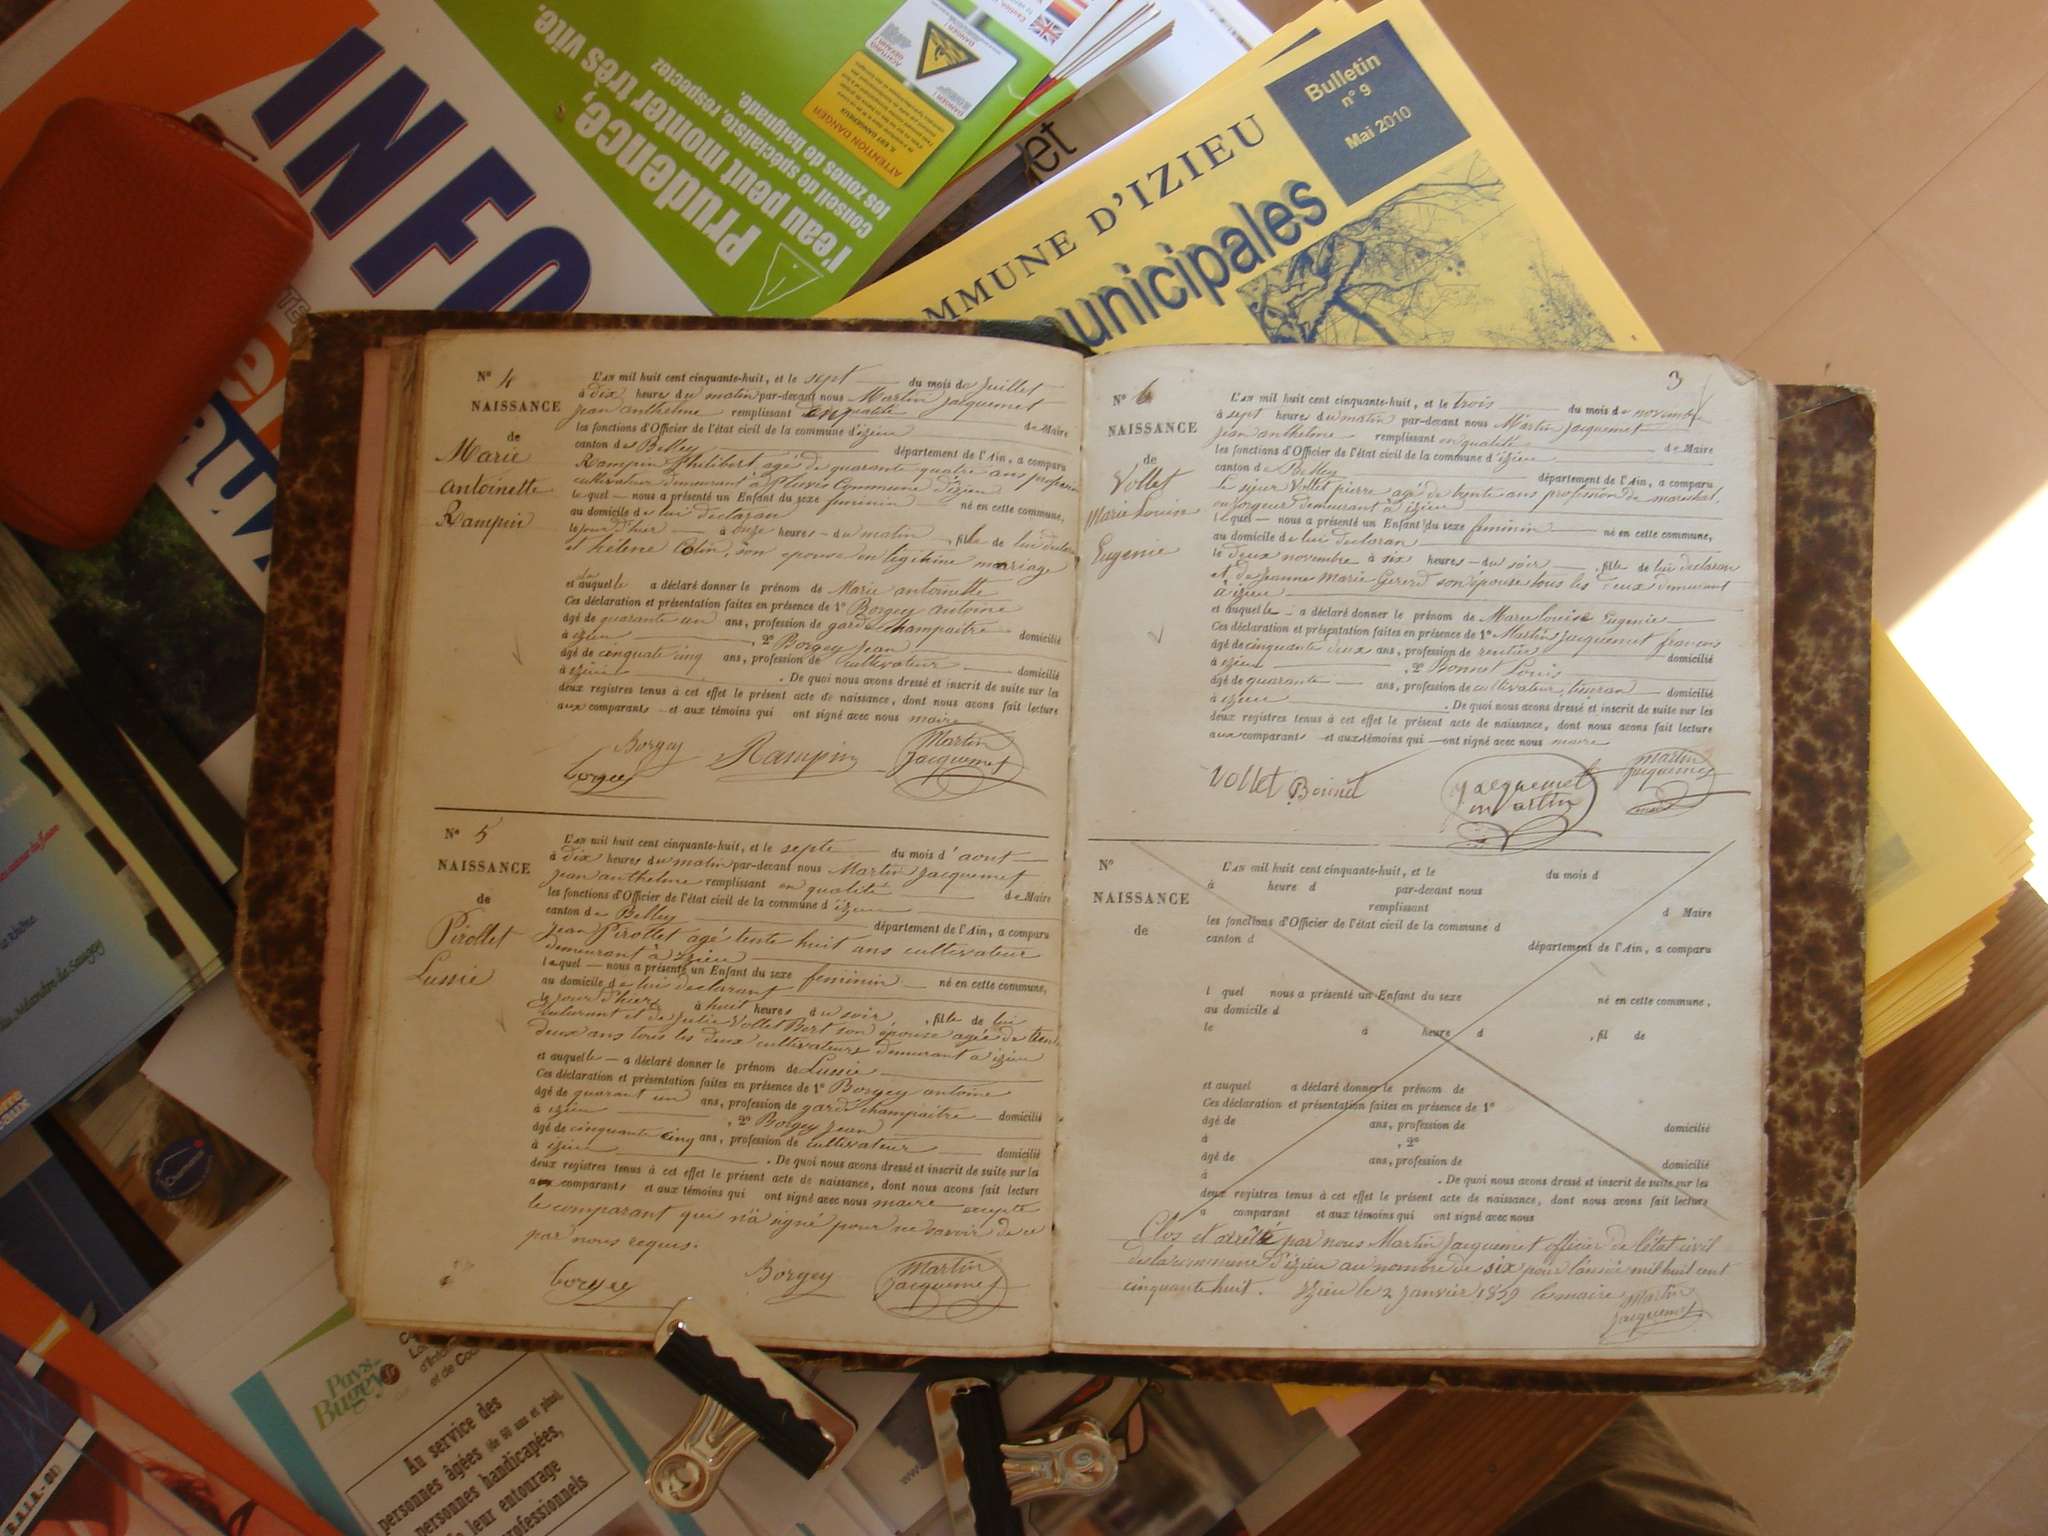 INFO
Prudence,
l'eau peut monter très vite.
Conseil de spécialiste, respectez
les zones de baignade.
ATTENTION DANGER
COMMUNE D'IZIEU
unicipales
Bulletin
n° 9
Mai 2010
N° 4
NAISSANCE
de
Marie
antoinette
Rampin
L'AN mil huit cent cinquante-huit, et le sept du mois de Juillet
à dix heures du matin par-devant nous Martin Jacquemet
jean anthelme remplissant en qualité de Maire
les fonctions d'Officier de l'état civil de la commune d'izieu
canton de Belley département de l'Ain, a comparu
Rampin Philibert, agé de quarante quatre ans profession
cultivateur demeurant à Pluvis Commune d'izieu
lequel nous a présenté un Enfant du sexe feminin né en cette commune,
au domicile de lui declaran
le jour d'hier à onze heures du matin, fille de lui declaran
et hélene Colin, son epouse en légitime mariage
et auquelle a déclaré donner le prénom de Marie antoinette
Ces déclaration et présentation faites en présence de 1° Borgey antoine
âgé de quarante un ans, profession de garde champaitre domicilié
à izieu, 2° Borgey Jean
âgé de cenquate cinq ans, profession de cultivateur domicilié
à izieu. De quoi nous avons dressé et inscrit de suite sur les
deux registres tenus à cet effet le présent acte de naissance, dont nous avons fait lecture
aux comparants et aux témoins qui ont signé avec nous maire
Borgey Rampin Martin
borgey Jacquemet
N° 5
NAISSANCE
de
Pirollet
Lussie
L'AN mil huit cent cinquante-huit, et le septe du mois d'aout
à dix heures du matin par-devant nous Martin Jacquemet
jean anthelme remplissant en qualité de Maire
les fonctions d'Officier de l'état civil de la commune d'izieu
canton de Belley département de l'Ain, a comparu
jean Pirollet agé tente huit ans cultivateur
demeurant à izieu
lequel nous a présenté un Enfant du sexe feminin né en cette commune,
au domicile de lui declarant
le jour d'hier à huit heures du soir, fille de lui
et de Julie Vollet Bert son épouse agée de trente
deux ans tous les deux cultivateurs demurant a izieu
et auquelle a déclaré donner le prénom de Lussie
Ces déclaration et présentation faites en présence de 1° Borgey antoine
âgé de quarant un ans, profession de garde champaitre domicilié
à izieu, 2° Borgey Jean
âgé de cinquante cinq ans, profession de cultivateur domicilié
à izieu. De quoi nous avons dressé et inscrit de suite sur les
deux registres tenus à cet effet le présent acte de naissance, dont nous avons fait lecture
aux comparants et aux témoins qui ont signé avec nous maire excepté
le comparant qui n'a signé pour ne savoir de ce
par nous requis.
borgey Borgey Martin
Jacquemet
3
N° 6
NAISSANCE
de
Vollet
Marie Louise
Eugenie
L'AN mil huit cent cinquante-huit, et le trois du mois de novembre
à sept heure du matin par-devant nous Martin Jacquemet
jean anthelme remplissant en qualité de Maire
les fonctions d'Officier de l'état civil de la commune d'izieu
canton de Belley département de l'Ain, a comparu
Le sieur Vollet pierre agé de trente ans profession de marechal
en forgeur demeurant à izieu
lequel nous a présenté un Enfant du sexe feminin né en cette commune,
au domicile de lui declaran
le deux novembre à six heures du soir, fille de lui declaran
et de Jeanne Marie Gererd son épouse tous les deux demurant
à izieu
et auquelle a déclaré donner le prénom de Marie Louise Eugenie
Ces déclaration et présentation faites en présence de 1° Martin Jacquemet francois
âgé de cinquante deux ans, profession de rentier domicilié
à izieu, 2° Bonnet Louis
âgé de quarante ans, profession de cultivateur domicilié
à izieu. De quoi nous avons dressé et inscrit de suite sur les
deux registres tenus à cet effet le présent acte de naissance, dont nous avons fait lecture
aux comparants et aux témoins qui ont signé avec nous maire
Vollet Bonnet Jacquemet martin
martin Jacquemet
N°
NAISSANCE
de
L'AN mil huit cent cinquante-huit, et le du mois d
à heure d par-devant nous
remplissant d Maire
les fonctions d'Officier de l'état civil de la commune d
canton d département de l'Ain, a comparu
l quel nous a présenté un Enfant du sexe né en cette commune,
au domicile d
le à heure d, fil de
et auquel a déclaré donner le prénom de
Ces déclaration et présentation faites en présence de 1°
âgé de ans, profession de domicilié
à, 2°
âgé de ans, profession de domicilié
à. De quoi nous avons dressé et inscrit de suite sur les
deux registres tenus à cet effet le présent acte de naissance, dont nous avons fait lecture
a comparant et aux témoins qui ont signé avec nous
Clos et arrêté par nous Martin Jacquemet officier de l'état civil
de la commune d'izieu au nombre de six pour l'année mil huit cent
cinquante huit. Izieu le 2 janvier 1859 le maire Martin
Jacquemet
Pays-
Bugey
Au service des
personnes âgées (de 60 ans et plus),
personnes handicapées,
de leur entourage
professionnels